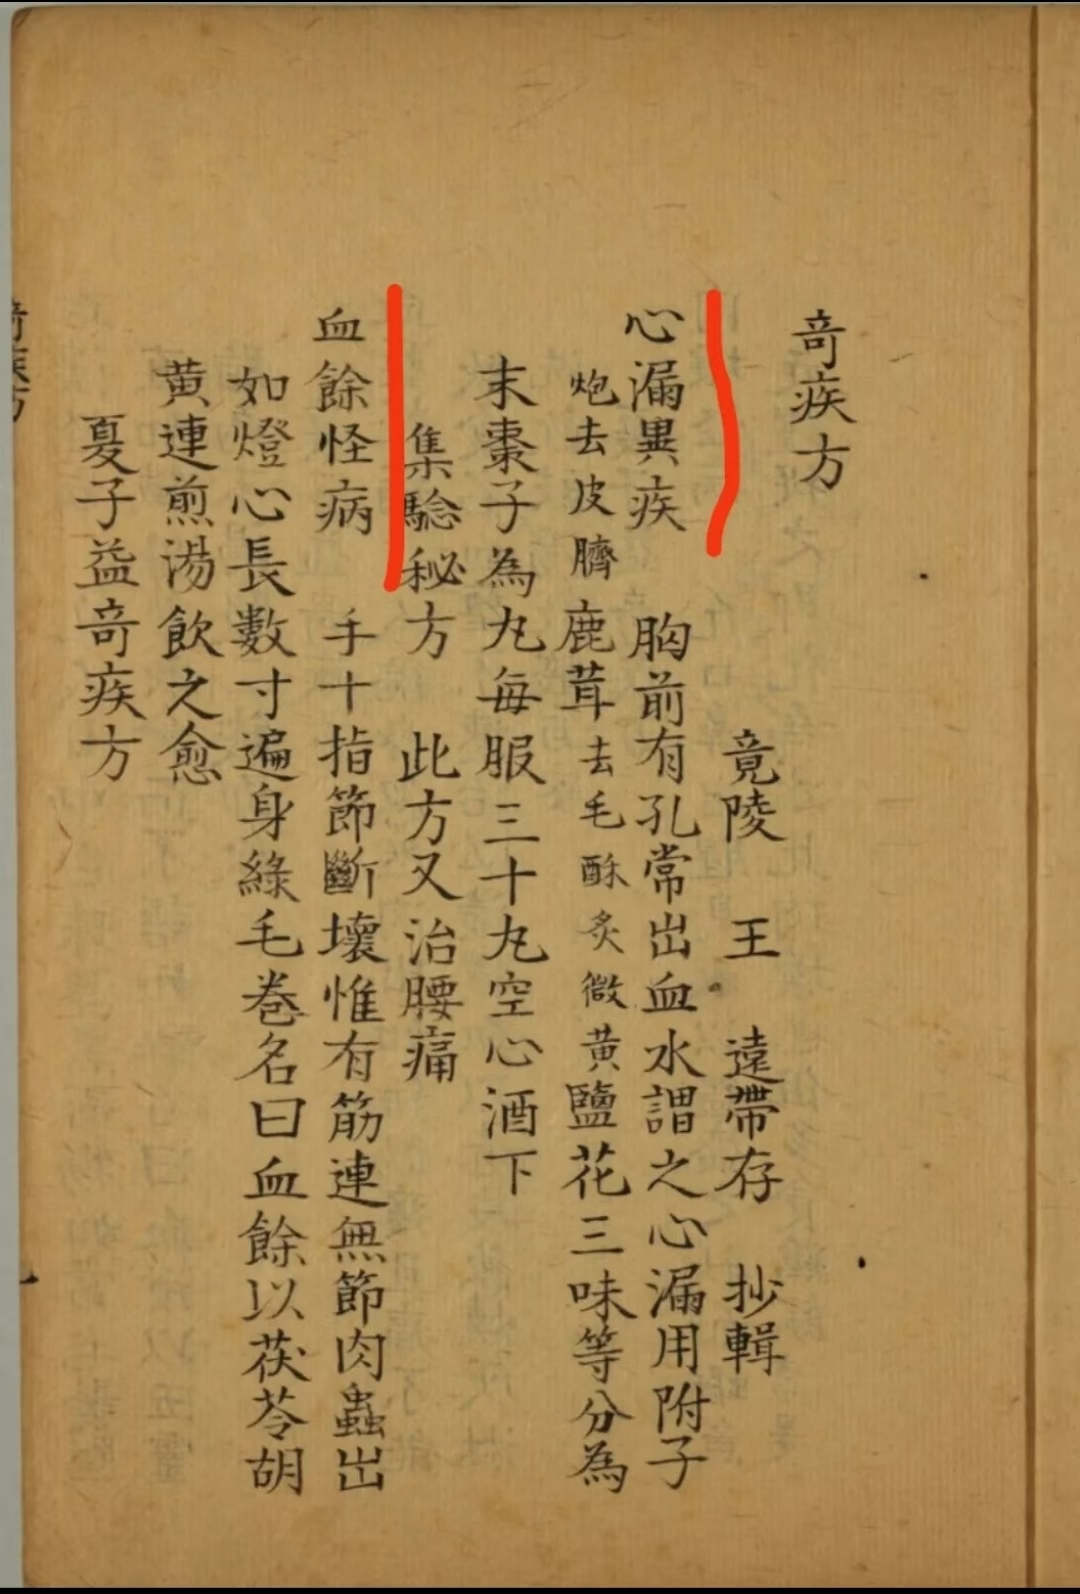 奇疾方
竟陵 王 遠帶存 抄輯
心漏異疾 胸前有孔常出血水謂之心漏用附子
炮去皮臍鹿茸去毛酥炙微黄鹽花三味等分為
末棗子為丸每服三十丸空心酒下
集騐秘方 此方又治腰痛
血餘怪病 手十指節斷壞惟有筋連無節肉蟲出
如燈心長數寸遍身綠毛卷名曰血餘以茯苓胡
黄連煎湯飲之愈
夏子益奇疾方